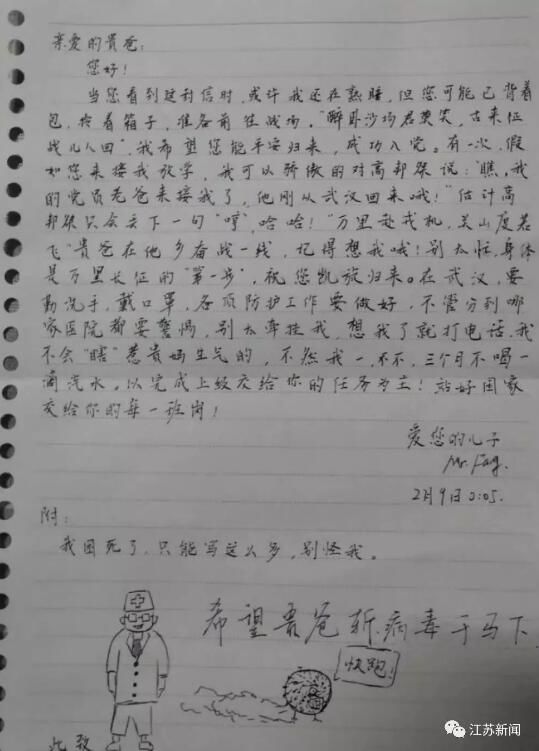 亲爱的贵爸:
您好!
当您看到这封信时,或许我还在熟睡,但您可能已背着
包,拎着箱子,准备前往战场。"醉卧沙场君莫笑,古来征
战几人回",我希望您能平安归来,成功入党。有一次,假
如您来接我放学,我可以骄傲的对高邦杰说:"瞧,我
的党员老爸来接我了,他刚从武汉回来哦!"估计高
邦杰只会丢下一句"哼"哈哈!"万里赴戎机,关山度若
飞"贵爸在他乡奋战一线,记得想我哦!别太忙,身体
是万里长征的"第一步",祝您凯旋归来。在武汉,要
勤洗手,戴口罩,各项防护工作要做好,不管分到哪
家医院都要警惕,别太牵挂我,想我了就打电话。我
不会"瞎"惹贵妈生气的,不然我一,不不,三个月不喝一
滴汽水。以完成上级交给你的任务为主!站好国家
交给你的每一班岗!
爱您的儿子
Mr. Fang.
2月9日0:05.
附:
我困死了,只能写这么多,别怪我。
希望吾爸斩病毒于马下
快跑!
此致
江苏新闻